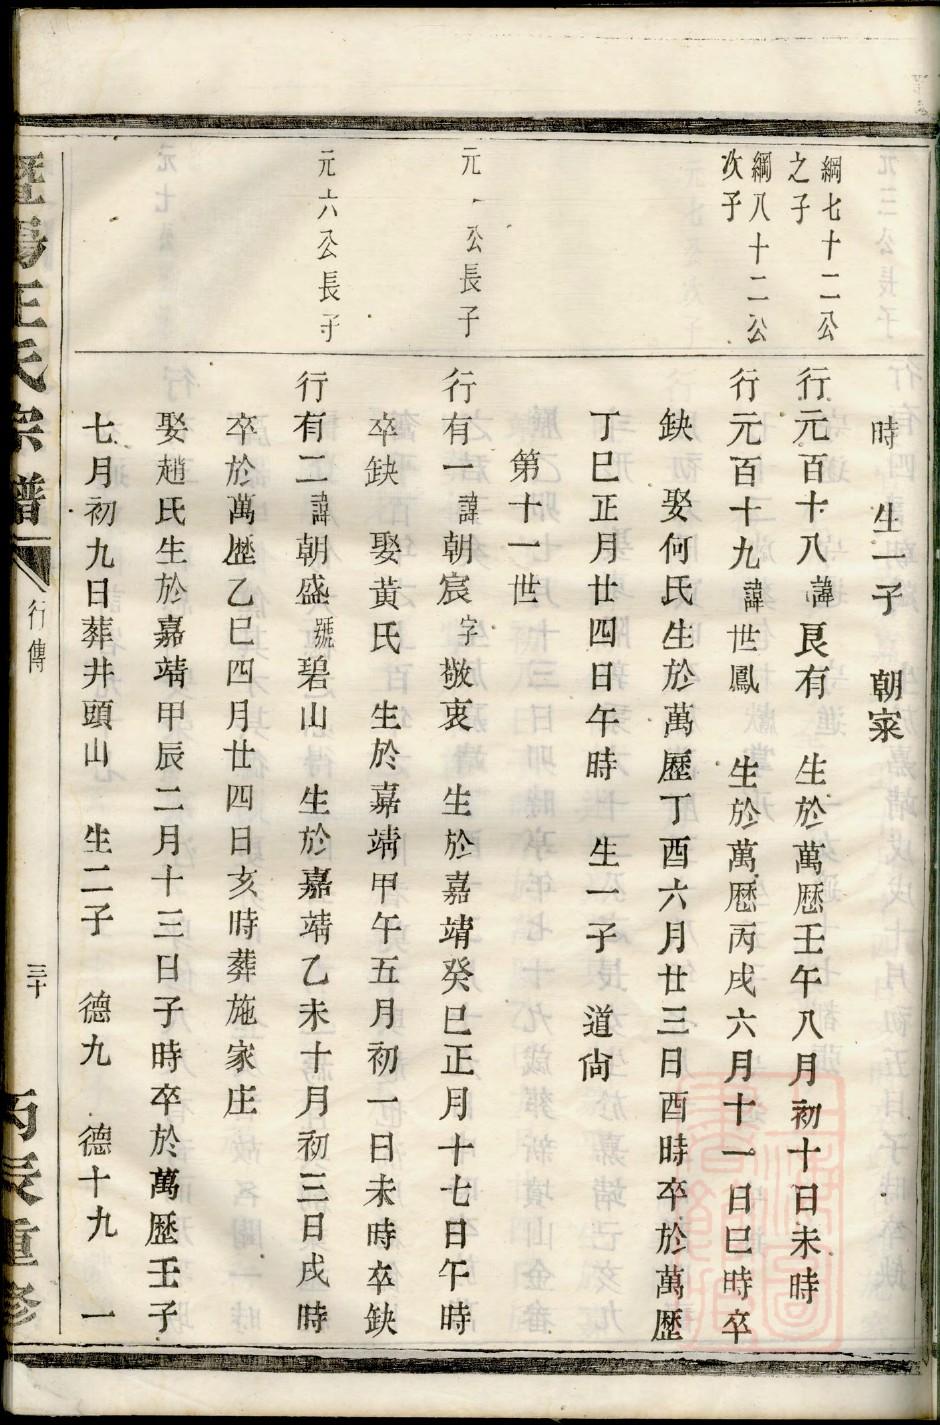 時　生一子　朝寀
綱七十二公
之子
行元百十八諱良有　生於萬歷壬午八月初十日未時
綱八十二公
次子
行元百十九諱世鳳　生於萬歷丙戌六月十一日巳時卒
缺　娶何氏生於萬歷丁酉六月廿三日酉時卒於萬歷
丁巳正月廿四日午時　生一子　道尙
第十一世
元一公長子
行有一諱朝宸字敬衷　生於嘉靖癸巳正月十七日午時
卒缺　娶黃氏　生於嘉靖甲午五月初一日未時卒缺
元六公長子
行有二諱朝盛號碧山　生於嘉靖乙未十月初三日戌時
卒於萬歷乙巳四月廿四日亥時葬施家庄
娶趙氏生於嘉靖甲辰二月十三日子時卒於萬歷壬子
七月初九日葬井頭山　生二子　德九　德十九　一
暨陽汪氏宗譜
行傳
三十
丙辰重修